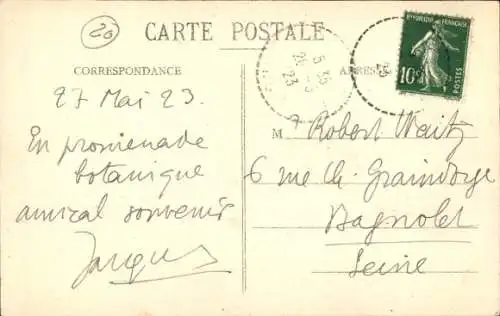 20
CARTE POSTALE
CORRESPONDANCE
27 Mai 23.
En promenade
botanique
amical souvenir
Jacques
RÉPUBLIQUE FRANÇAISE
10c
POSTES
ADRESSE
M r Robert Waitz
6 rue Ch. Graindorge
Bagnolet
Seine